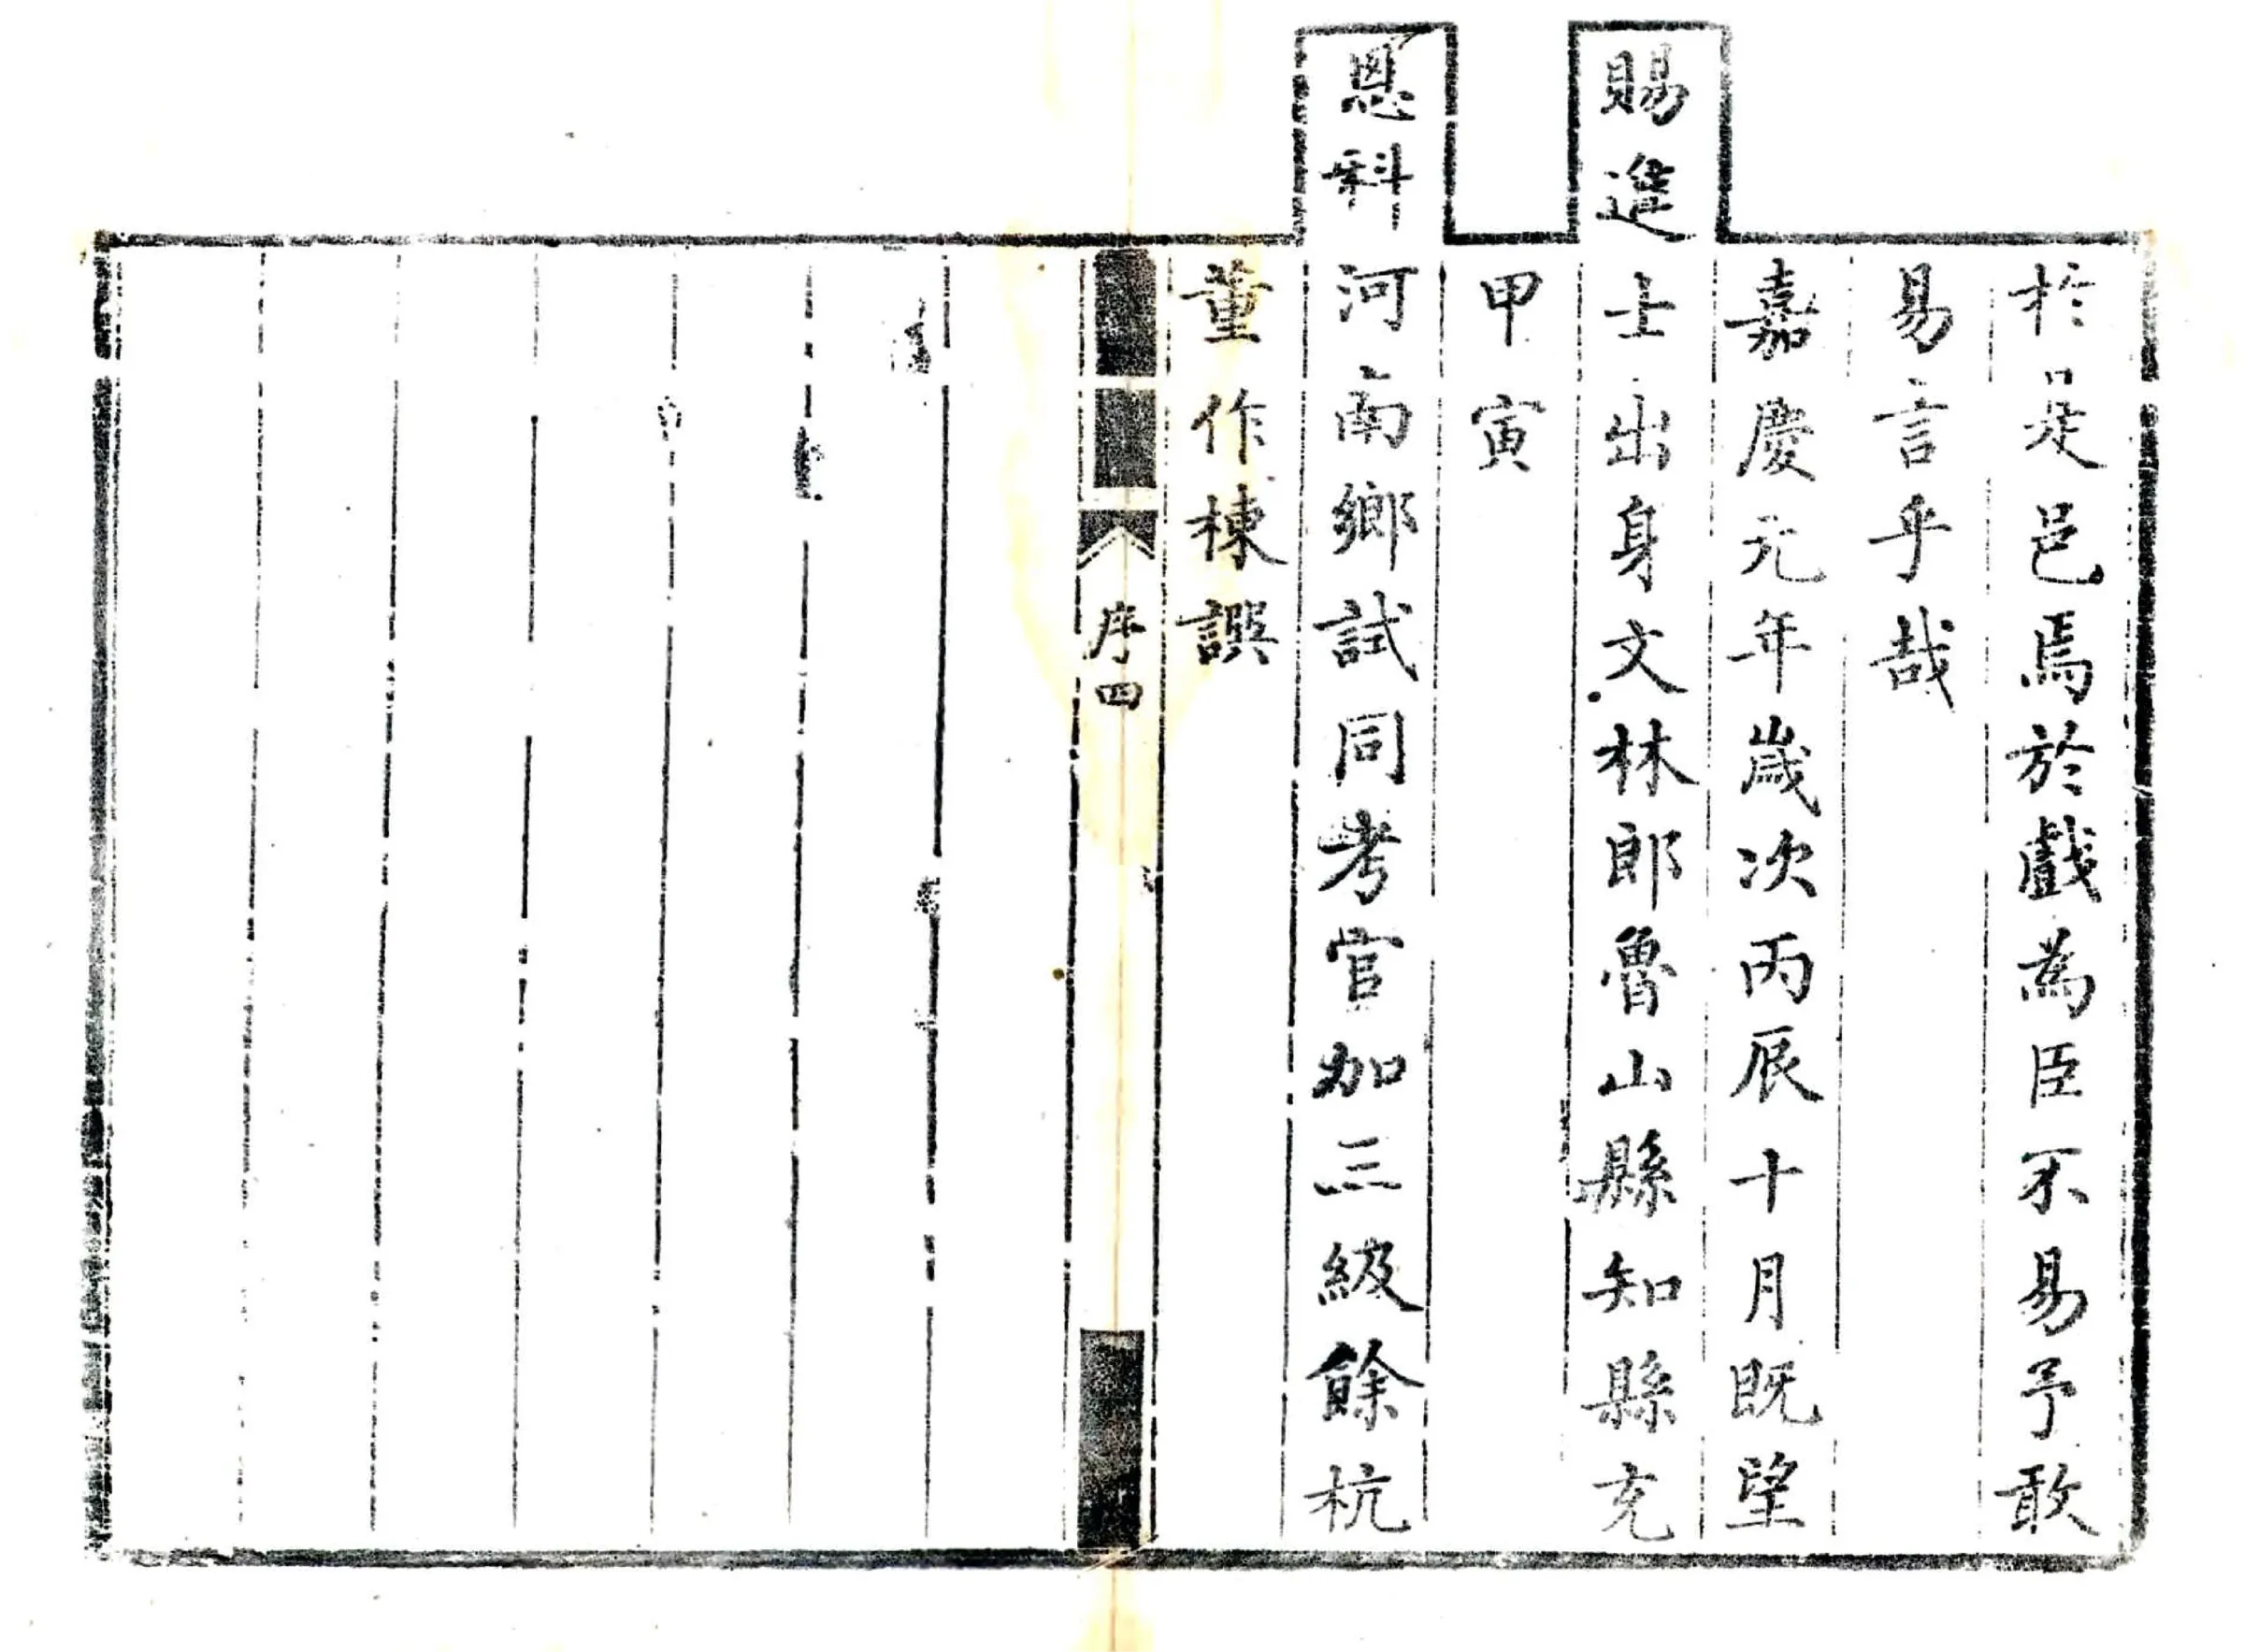 於是邑焉於戲為臣不易予敢
易言乎哉
嘉慶元年歲次丙辰十月既望
賜進士出身文林郎魯山縣知縣充
甲寅
恩科河南鄉試同考官加三級餘杭
董作棟譔
序四